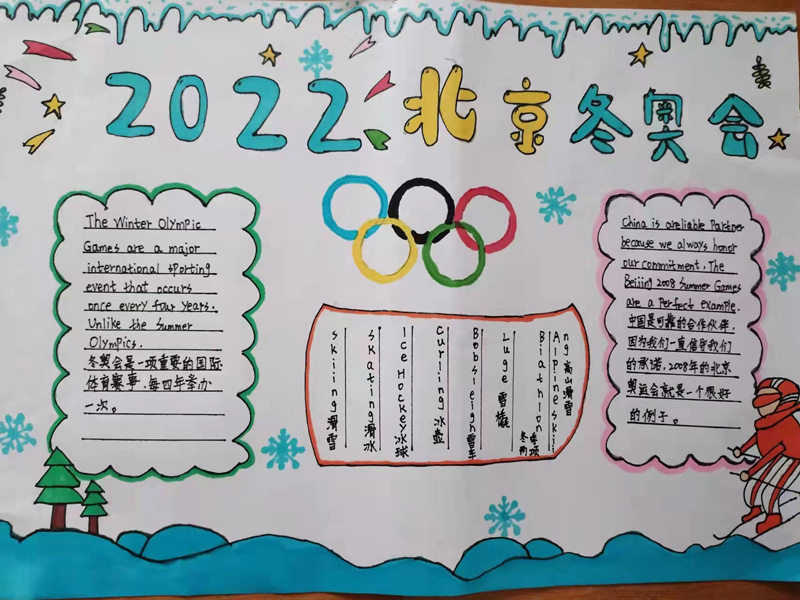 2022北京冬奥会
The Winter Olympic
Games are a major
international sporting
event that occurs
once every four years.
Unlike the Summer
Olympics.
冬奥会是一项重要的国际
体育赛事,每四年举办
一次。
Skiing 滑雪
Skating 滑冰
Ice Hockey 冰球
Curling 冰壶
Bobsleigh 雪车
Luge 雪橇
Biathlon 冬季两项
Alpine ski
ng 高山滑雪
China is areliable Partner
because we always honor
our commitment. The
Beijing 2008 Summer Games
are a Perfect example.
中国是可靠的合作伙伴,
因为我们一直信守我们
的承诺。2008年的北京
奥运会就是一个很好
的例子。